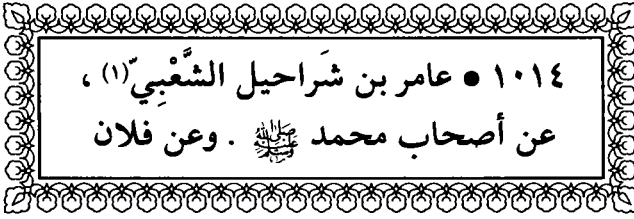 ١٠١٤ ● عامر بن شَراحيل الشَّعْبِيّ(١) ،
عن أصحاب محمد ﷺ . وعن فلان